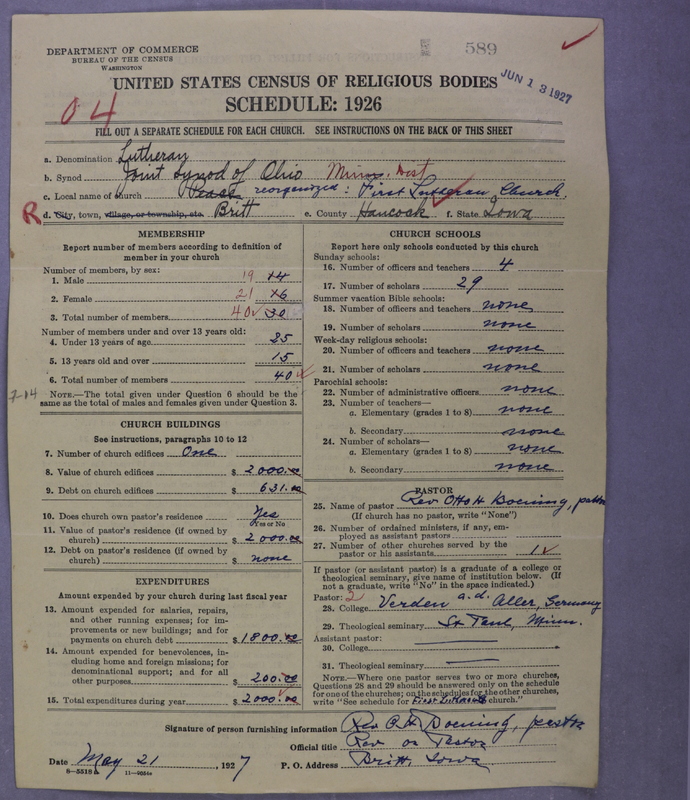 589
JUN 13 1927
DEPARTMENT OF COMMERCE
BUREAU OF THE CENSUS
WASHINGTON
UNITED STATES CENSUS OF RELIGIOUS BODIES
SCHEDULE: 1926
04
FILL OUT A SEPARATE SCHEDULE FOR EACH CHURCH. SEE INSTRUCTIONS ON THE BACK OF THIS SHEET
a. Denomination Lutheran
b. Synod Joint Synod of Ohio Minn. Dist
c. Local name of church Peace reorganized: First Lutheran Church.
R d. City, town, village, or township, etc. Britt e. County Hancock f. State Iowa
MEMBERSHIP
Report number of members according to definition of
member in your church
Number of members, by sex:
1. Male 19 14
2. Female 21 16
3. Total number of members 40 30
Number of members under and over 13 years old:
4. Under 13 years of age 25
5. 13 years old and over 15
6. Total number of members 40
7-14
NOTE.—The total given under Question 6 should be the
same as the total of males and females given under Question 3.
CHURCH BUILDINGS
See instructions, paragraphs 10 to 12
7. Number of church edifices One
8. Value of church edifices $ 2000.00
9. Debt on church edifices $ 631.00
10. Does church own pastor's residence Yes
Yes or No
11. Value of pastor's residence (if owned by
church) $ 2000.00
12. Debt on pastor's residence (if owned by
church) $ none
EXPENDITURES
Amount expended by your church during last fiscal year
13. Amount expended for salaries, repairs,
and other running expenses; for im-
provements or new buildings; and for
payments on church debt $ 1800.00
14. Amount expended for benevolences, in-
cluding home and foreign missions; for
denominational support; and for all
other purposes $ 200.00
15. Total expenditures during year $ 2000.00
CHURCH SCHOOLS
Report here only schools conducted by this church
Sunday schools:
16. Number of officers and teachers 4
17. Number of scholars 29
Summer vacation Bible schools:
18. Number of officers and teachers none
19. Number of scholars none
Week-day religious schools:
20. Number of officers and teachers none
21. Number of scholars none
Parochial schools:
22. Number of administrative officers none
23. Number of teachers—
a. Elementary (grades 1 to 8) none
b. Secondary none
24. Number of scholars—
a. Elementary (grades 1 to 8) none
b. Secondary none
PASTOR
25. Name of pastor Rev. Otto H Boening, pastor
(If church has no pastor, write "None")
26. Number of ordained ministers, if any, em-
ployed as assistant pastors
27. Number of other churches served by the
pastor or his assistants 1
If pastor (or assistant pastor) is a graduate of a college or
theological seminary, give name of institution below. (If
not a graduate, write "No" in the space indicated.)
Pastor: 2
28. College Verden a.d. Aller, Germany
29. Theological seminary St Paul, Minn.
Assistant pastor:
30. College
31. Theological seminary
NOTE.—Where one pastor serves two or more churches,
Questions 28 and 29 should be answered only on the schedule
for one of the churches; on the schedules for the other churches,
write "See schedule for First Lutheran church."
Signature of person furnishing information Rev O.H. Boening, pastor
Official title Rev or Pastor
Date May 21, 1927 P. O. Address Britt, Iowa
8—5518a 11—9054a